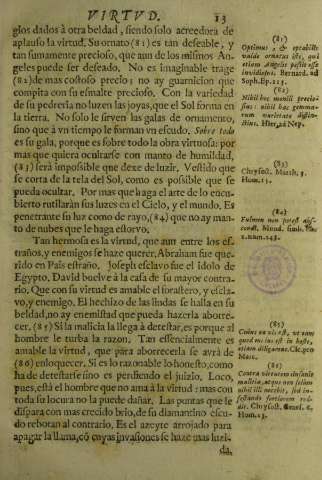 VIRTVD. 13
gios dados à otra beldad, siendo solo acreedora de
aplauso la virtud. Su ornato (81) es tan deseable, y
tan sumamente precioso, que aun de los mismos An-
geles puede ser deseado. No es imaginable trage
(82) de mas costoso precio; no ay guarnicion que
compita con su esmalte precioso. Con la variedad
de su pedreria no luzen las joyas, que el Sol forma en
la tierra. No solo le sirven las galas de ornamento,
sino que à vn tiempo le forman vn escudo. Sobre todo
es su gala, porque es sobre todo la obra virtuosa: por
mas que quiera ocultarse con manto de humildad,
(83) serà imposible que dexe de luzir. Vestido que
se corta de la tela del Sol, como es posible que se
pueda ocultar. Por mas que haga el arte de lo encu-
bierto rutilaràn sus luzes en el Cielo, y el mundo. Es
penetrante su luz como de rayo, (84) que no ay man-
to de nubes que le haga estorvo.
Tan hermosa es la virtud, que aun entre los es-
traños, y enemigos se haze querer. Abraham fue que-
rido en Pais estraño. Joseph esclavo fue el idolo de
Egypto. David buelve à la casa de su mayor contra-
rio. Que con su virtud es amable el forastero, y escla-
vo, y enemigo. El hechizo de las lindas se halla en su
beldad, no ay enemistad que pueda hazerla aborre-
cer. (85) Si la malicia llega à detestar, es porque al
hombre le turba la razon. Tan essencialmente es
amable la virtud, que para aborrecerla se avrà de
(86) enloquecer. Si es lo razonable lo honesto, como
ha de detestarse sino es perdiendo el juizio. Loco,
pues, està el hombre que no ama à la virtud: mas con
toda su locura no la puede dañar. Las puntas que le
dispara con mas crecido brio, de su diamantino escu-
do rebotan al contrario. Es el azeyte arrojado para
apagar la llama, cõ cuyas invasiones se haze mas luci-
da,
(81)
Optimus, & optabilis
valde ornatus iste, qui
etiam Angelis posit esse
invidiosus. Bernard. ad
Soph. Ep. 113.
(82)
Nihil hoc monili precio-
sius: nihil hac gemma-
rum varietate distin-
ctius. Hier. ad Nep.
(83)
Chrysost. Matth. 5.
Hom. 15.
(84)
Fulmen non potest abs-
condi. Mund. simb.
2. num. 143.
(85)
(86)
Contra virtutem insanit
malitia, atque non solum
nihil ei nocet, sed in-
festando fortiorem red-
dit. Chrysost. Genes. 6.
Hom. 23.